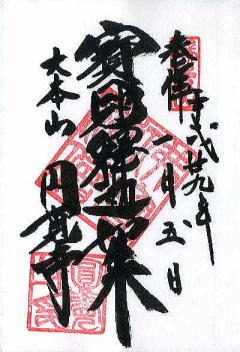 奉拝
平成廿九年
一月五日
寶冠釋迦如来
大本山
円覚寺